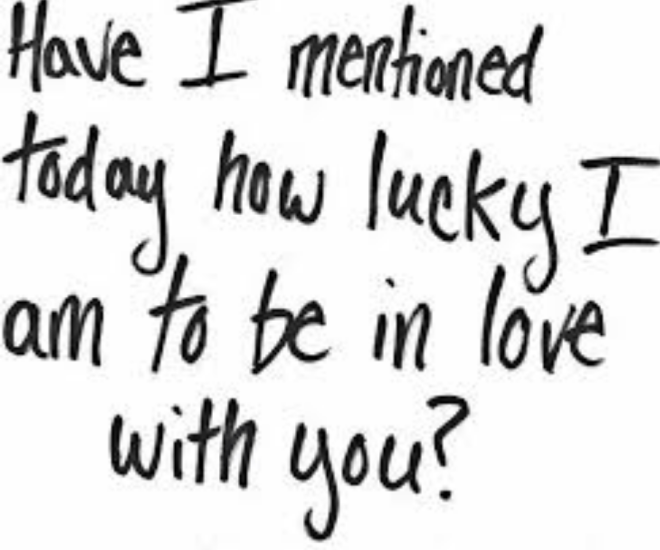 Have I mentioned
today how lucky I
am to be in love
with you?